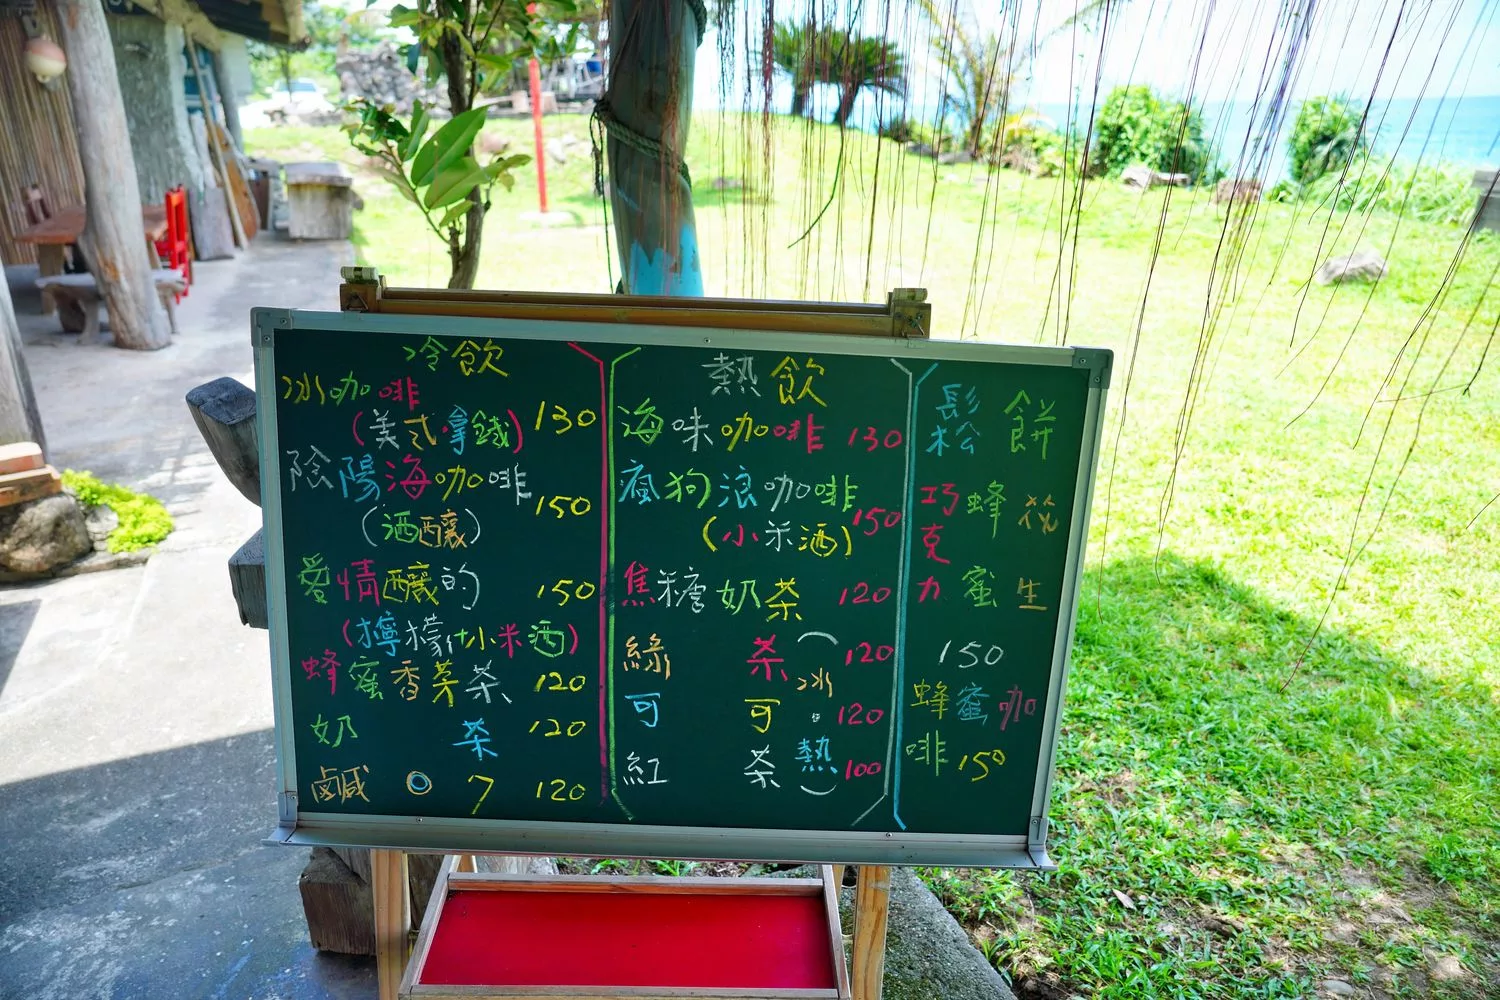 冷飲
冰咖啡
(美式拿鐵) 130
陰陽海咖啡
(酒釀) 150
愛情釀的 150
(檸檬汁小米酒)
蜂蜜香茅茶 120
奶 茶 120
鹹 〇 7 120
熱飲
海味咖啡 130
瘋狗浪咖啡
(小米酒) 150
焦糖奶茶 120
綠 茶 120
可 可 120
紅 茶 100
(冰。熱)
鬆餅
巧克力
蜂蜜
花生
150
蜂蜜咖
啡 150